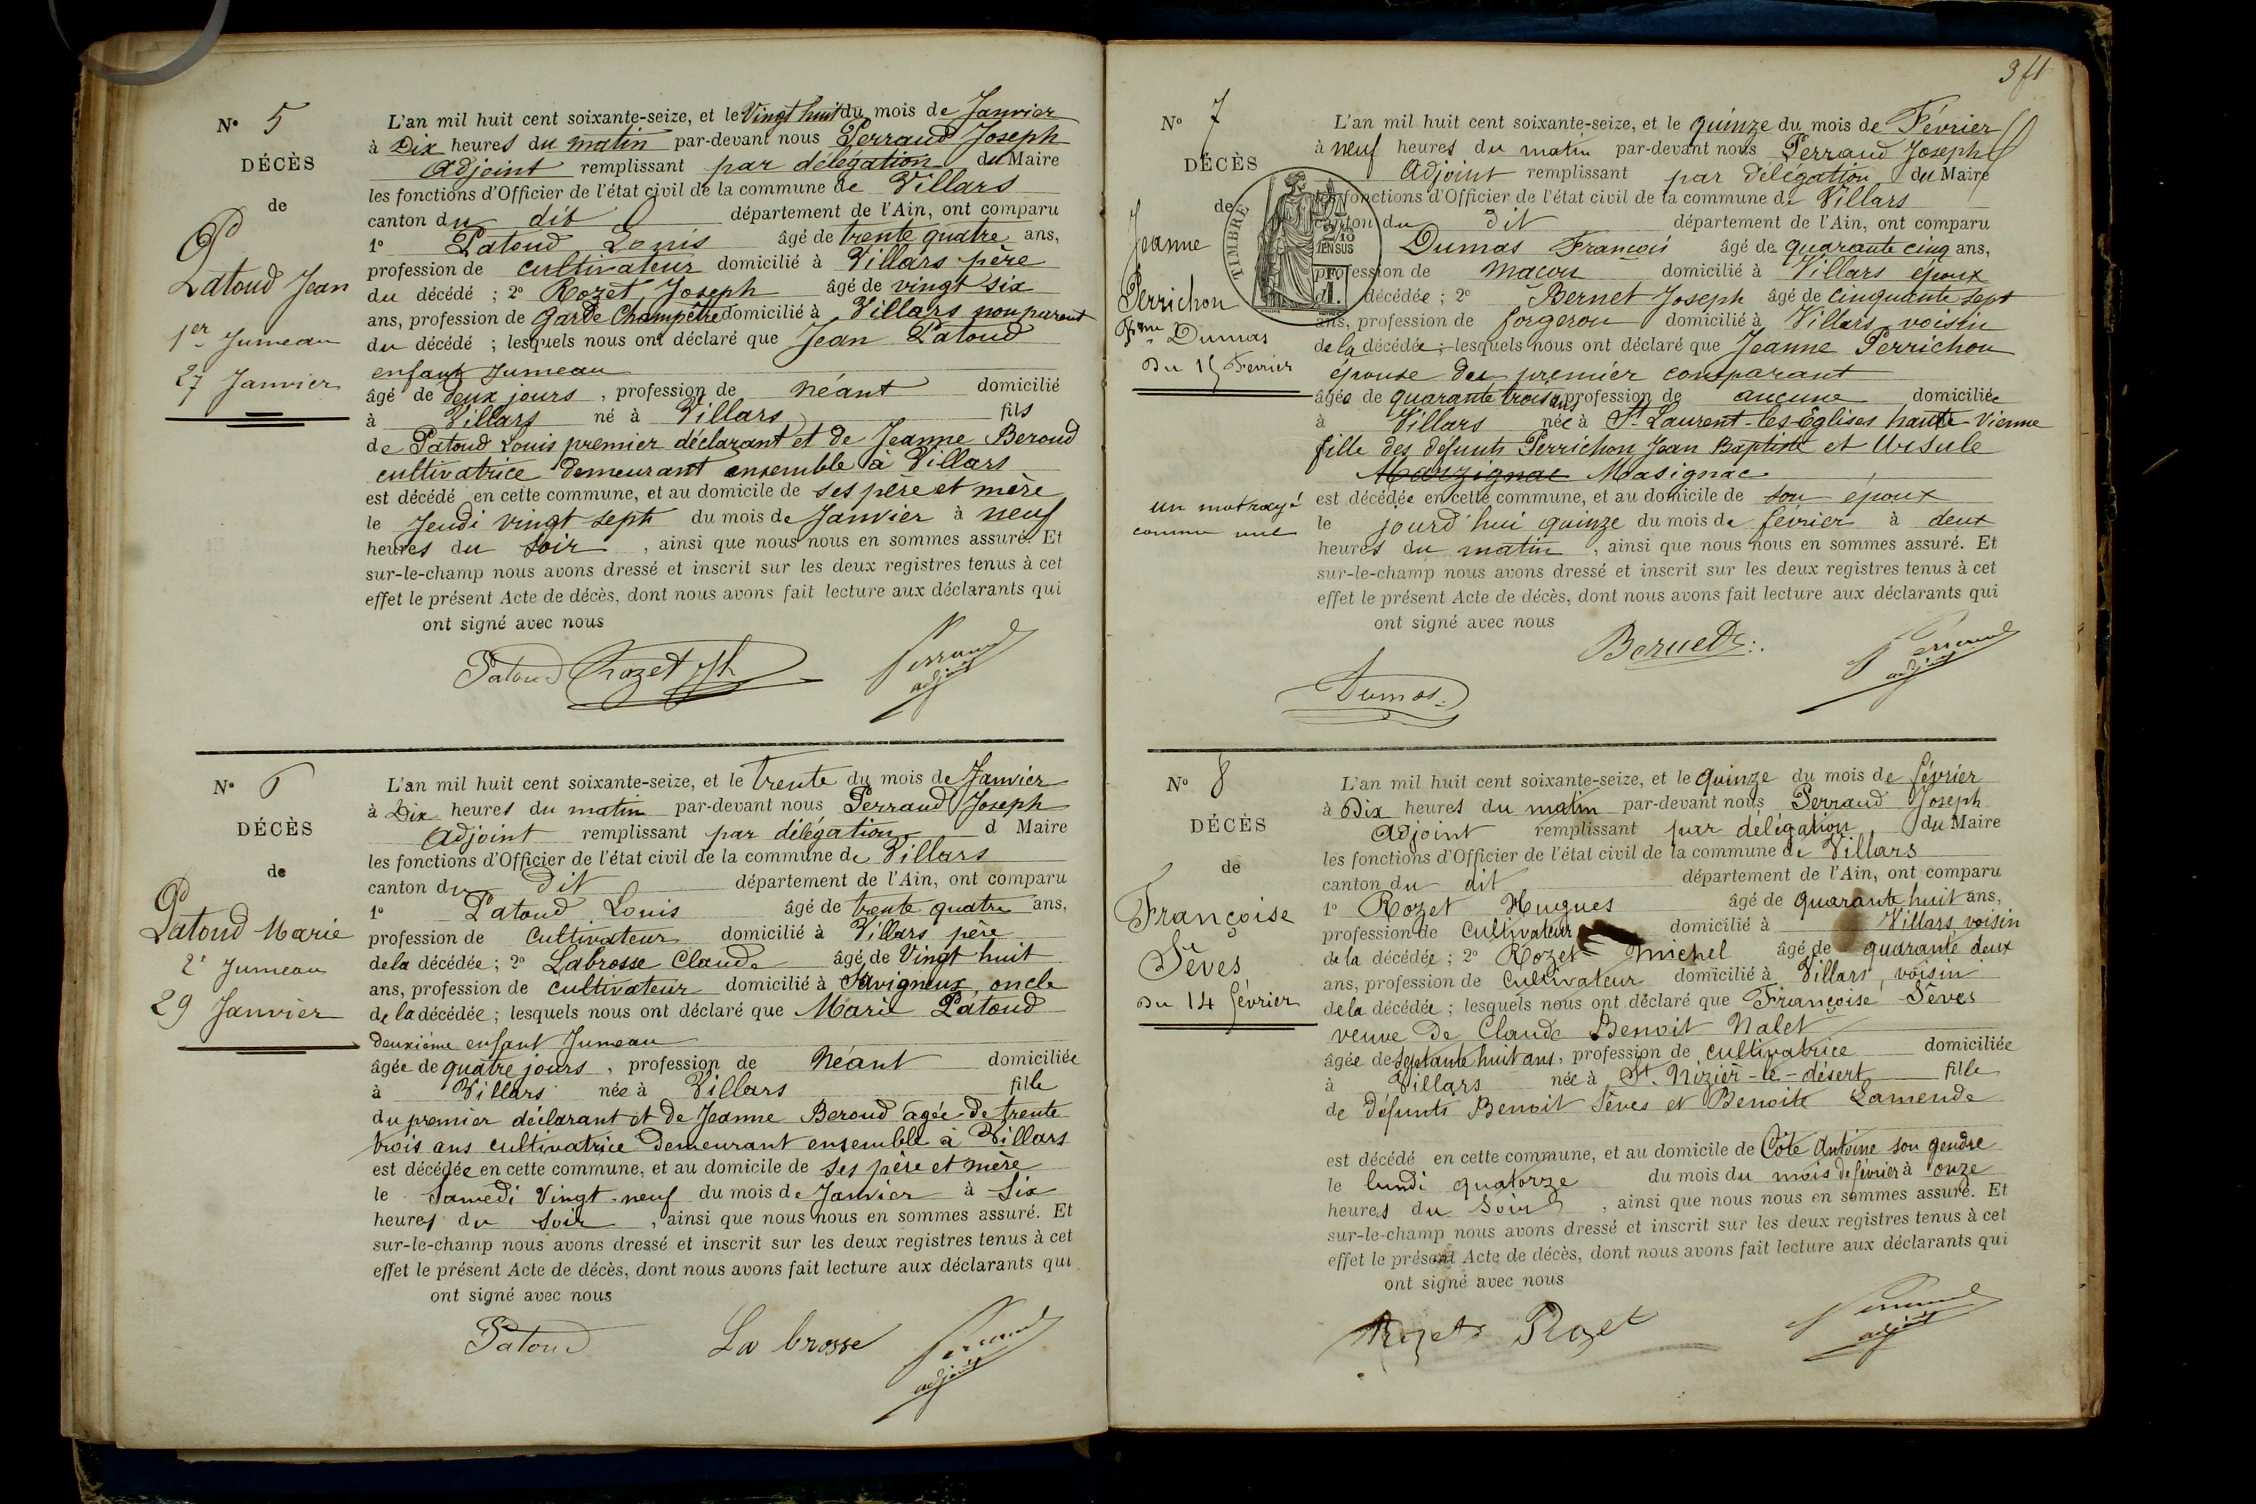 N° 5
DÉCÈS
de
Patoud Jean
1er Jumeau
27 Janvier
L'an mil huit cent soixante-seize, et le Vingt huit du mois de Janvier
à Dix heures du matin par-devant nous Perraud Joseph
Adjoint remplissant par délégation du Maire
les fonctions d'Officier de l'état civil de la commune de Villars
canton du dit département de l'Ain, ont comparu
1° Patoud Louis âgé de trente quatre ans,
profession de cultivateur domicilié à Villars père
du décédé ; 2° Rozet Joseph âgé de vingt six
ans, profession de Garde Champêtre domicilié à Villars non parent
du décédé ; lesquels nous ont déclaré que Jean Patoud
enfant Jumeau
âgé de deux jours , profession de néant domicilié
à Villars né à Villars fils
de Patoud Louis premier déclarant et de Jeanne Beroud
cultivatrice demeurant ensemble à Villars
est décédé en cette commune, et au domicile de ses père et mère
le Jeudi vingt sept du mois de Janvier à neuf
heures du soir , ainsi que nous nous en sommes assuré. Et
sur-le-champ nous avons dressé et inscrit sur les deux registres tenus à cet
effet le présent Acte de décès, dont nous avons fait lecture aux déclarants qui
ont signé avec nous
Patoud Rozet Jh Perraud
adjoint
N° 6
DÉCÈS
de
Patoud Marie
2e Jumeau
29 Janvier
L'an mil huit cent soixante-seize, et le trente du mois de Janvier
à Dix heures du matin par-devant nous Perraud Joseph
Adjoint remplissant par délégation d Maire
les fonctions d'Officier de l'état civil de la commune de Villars
canton du dit département de l'Ain, ont comparu
1° Patoud Louis âgé de trente quatre ans,
profession de Cultivateur domicilié à Villars père
de la décédée ; 2° Labrosse Claude âgé de Vingt huit
ans, profession de cultivateur domicilié à Savigneux, oncle
de la décédée ; lesquels nous ont déclaré que Marie Patoud
deuxième enfant Jumeau
âgée de quatre jours , profession de Néant domiciliée
à Villars née à Villars fille
du premier déclarant et de Jeanne Beroud agée de trente
trois ans cultivatrice demeurant ensemble à Villars
est décédée en cette commune, et au domicile de ses père et mère
le Samedi Vingt-neuf du mois de Janvier à Six
heures du soir , ainsi que nous nous en sommes assuré. Et
sur-le-champ nous avons dressé et inscrit sur les deux registres tenus à cet
effet le présent Acte de décès, dont nous avons fait lecture aux déclarants qui
ont signé avec nous
Patoud La brosse Perraud
adjoint
N° 7
DÉCÈS
de
Jeanne
Perrichon
Fme Dumas
Du 15 Fevrier
un mot rayé
comme nul
TIMBRE
2/10
EN SUS
L'an mil huit cent soixante-seize, et le quinze du mois de Février
à neuf heures du matin par-devant nous Perraud Joseph
Adjoint remplissant par délégation du Maire
les fonctions d'Officier de l'état civil de la commune de Villars
canton du dit département de l'Ain, ont comparu
Dumas François âgé de quarante cinq ans,
profession de Maçon domicilié à Villars époux
d décédée ; 2° Bernet Joseph âgé de cinquante sept
ans, profession de forgeron domicilié à Villars voisin
de la décédée ; lesquels nous ont déclaré que Jeanne Perrichon
épouse du premier comparant
âgée de quarante trois ans, profession de aucune domiciliée
à Villars née à St Laurent-les-Eglises haute Vienne
fille des défunts Perrichon Jean Baptiste et Ursule
Mauzignac Masignac
est décédée en cette commune, et au domicile de son époux
le jourd'hui quinze du mois de février à deux
heures du matin , ainsi que nous nous en sommes assuré. Et
sur-le-champ nous avons dressé et inscrit sur les deux registres tenus à cet
effet le présent Acte de décès, dont nous avons fait lecture aux déclarants qui
ont signé avec nous
Dumas Bernet Perraud
adjoint
N° 8
DÉCÈS
de
Françoise
Sèves
Du 14 février
L'an mil huit cent soixante-seize, et le quinze du mois de février
à Dix heures du matin par-devant nous Perraud Joseph
Adjoint remplissant par délégation du Maire
les fonctions d'Officier de l'état civil de la commune de Villars
canton du dit département de l'Ain, ont comparu
1° Rozet Hugues âgé de quarante huit ans,
profession de Cultivateur domicilié à Villars voisin
de la décédée ; 2° Rozet Michel âgé de quarante deux
ans, profession de Cultivateur domicilié à Villars, voisin
de la décédée ; lesquels nous ont déclaré que Françoise Sèves
veuve de Claude Benoit Nalet
âgée de septante huit ans, profession de cultivatrice domiciliée
à Villars née à St. Nizier-le-désert fille
de défunts Benoit Sèves et Benoite Lamende
est décédé en cette commune, et au domicile de Côte Antoine son gendre
le lundi quatorze du mois du mois de février à onze
heures du Soir , ainsi que nous nous en sommes assuré. Et
sur-le-champ nous avons dressé et inscrit sur les deux registres tenus à cet
effet le présent Acte de décès, dont nous avons fait lecture aux déclarants qui
ont signé avec nous
Rozet Rozet Perraud
adjoint